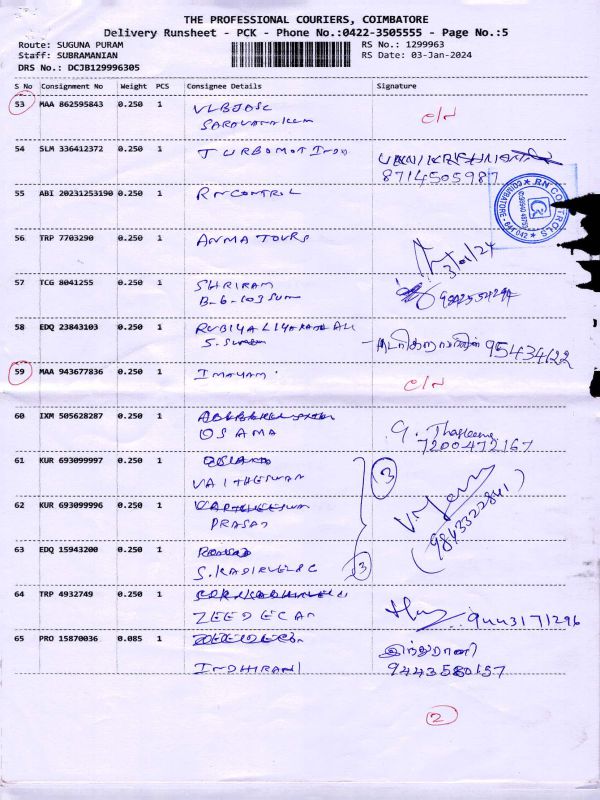 THE PROFESSIONAL COURIERS, COIMBATORE
Delivery Runsheet - PCK - Phone No.:0422-3505555 - Page No.:5
Route: SUGUNA PURAM
RS No.: 1299963
Staff: SUBRAMANIAN
RS Date: 03-Jan-2024
DRS No.: DCJB129996305
S No Consignment No Weight PCS Consignee Details Signature
53 MAA 862595843 0.250 1 VLBJOSC
SARAVANAKUM
C/N
54 SLM 336412372 0.250 1 TURBOMOT INDO
8714505987
55 ABI 20231253190 0.250 1 RNCONTROL
RN CONTROLS
COIMBATORE - 641 042
56 TRP 7703290 0.250 1 ANMA TOURS
3/01/24
57 TCG 8041255 0.250 1 SHRIRAM
B-6-103 Sum
58 EDQ 23843103 0.250 1 RUBIYA LIYAKATH ALI
59 MAA 943677836 0.250 1 IMAYAM
C/N
60 IXM 505628287 0.250 1
OSAMA
G. Thasleema
7200472167
61 KUR 693099997 0.250 1
VAITHESWAN
3
62 KUR 693099996 0.250 1
PRASAD
(9843322841)
63 EDQ 15943200 0.250 1
S.KADIRVELSC
3
64 TRP 4932749 0.250 1
ZEEDECAN
9443171296
65 PRO 15870036 0.085 1
INDHIRANI
இந்துராணி
9443580157
2